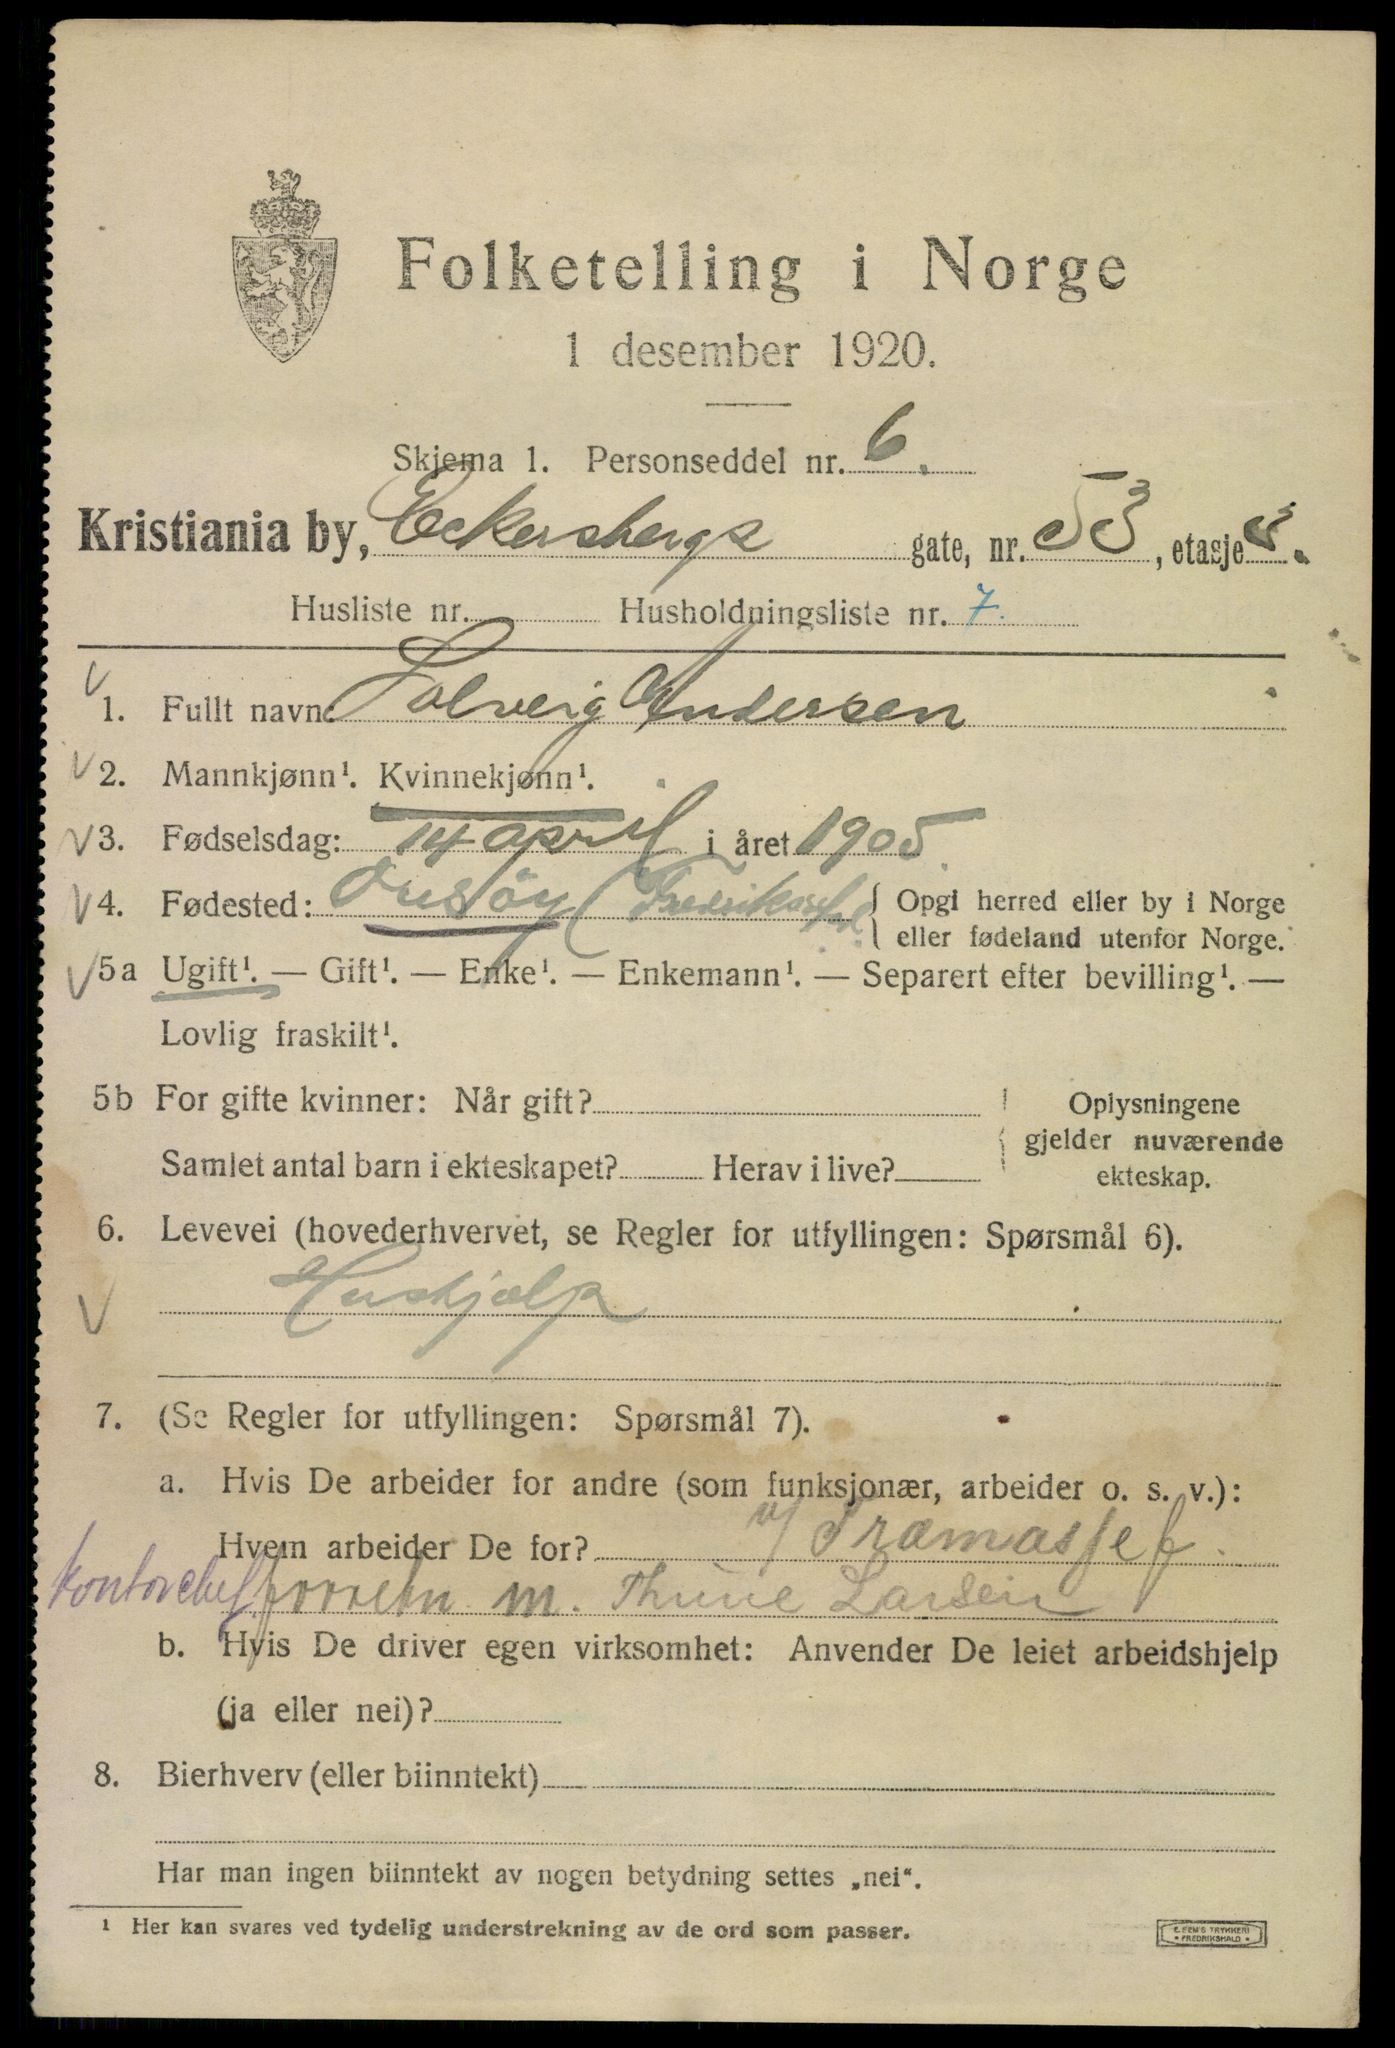 Folketelling i Norge
1 desember 1920.
Skjema 1. Personseddel nr. 6.
Kristiania by, Eckersbergs gate, nr. 53, etasje 3.
Husliste nr. Husholdningsliste nr. 7.
1. Fullt navn: Solveig Andersen
2. Mannkjønn¹. Kvinnekjønn¹.
3. Fødselsdag: 14 april i året 1905.
4. Fødested: Onsöy (Fredriksstad { Opgi herred eller by i Norge
eller fødeland utenfor Norge.
5a Ugift¹. — Gift¹. — Enke¹. — Enkemann¹. — Separert efter bevilling¹. —
Lovlig fraskilt¹.
5b For gifte kvinner: Når gift?
Samlet antal barn i ekteskapet? Herav i live?
Oplysningene
gjelder nuværende
ekteskap.
6. Levevei (hovederhvervet, se Regler for utfyllingen: Spørsmål 6).
Hushjælp
7. (Se Regler for utfyllingen: Spørsmål 7).
a. Hvis De arbeider for andre (som funksjonær, arbeider o. s. v.):
Hvem arbeider De for? v/ Træmassef.
kontorchef forretn. m. Thune Larsen
b. Hvis De driver egen virksomhet: Anvender De leiet arbeidshjelp
(ja eller nei)?
8. Bierhverv (eller biinntekt)
Har man ingen biinntekt av nogen betydning settes „nei“.
¹ Her kan svares ved tydelig understrekning av de ord som passer.
E. SEM'S TRYKKERI
• FREDRIKSHALD •